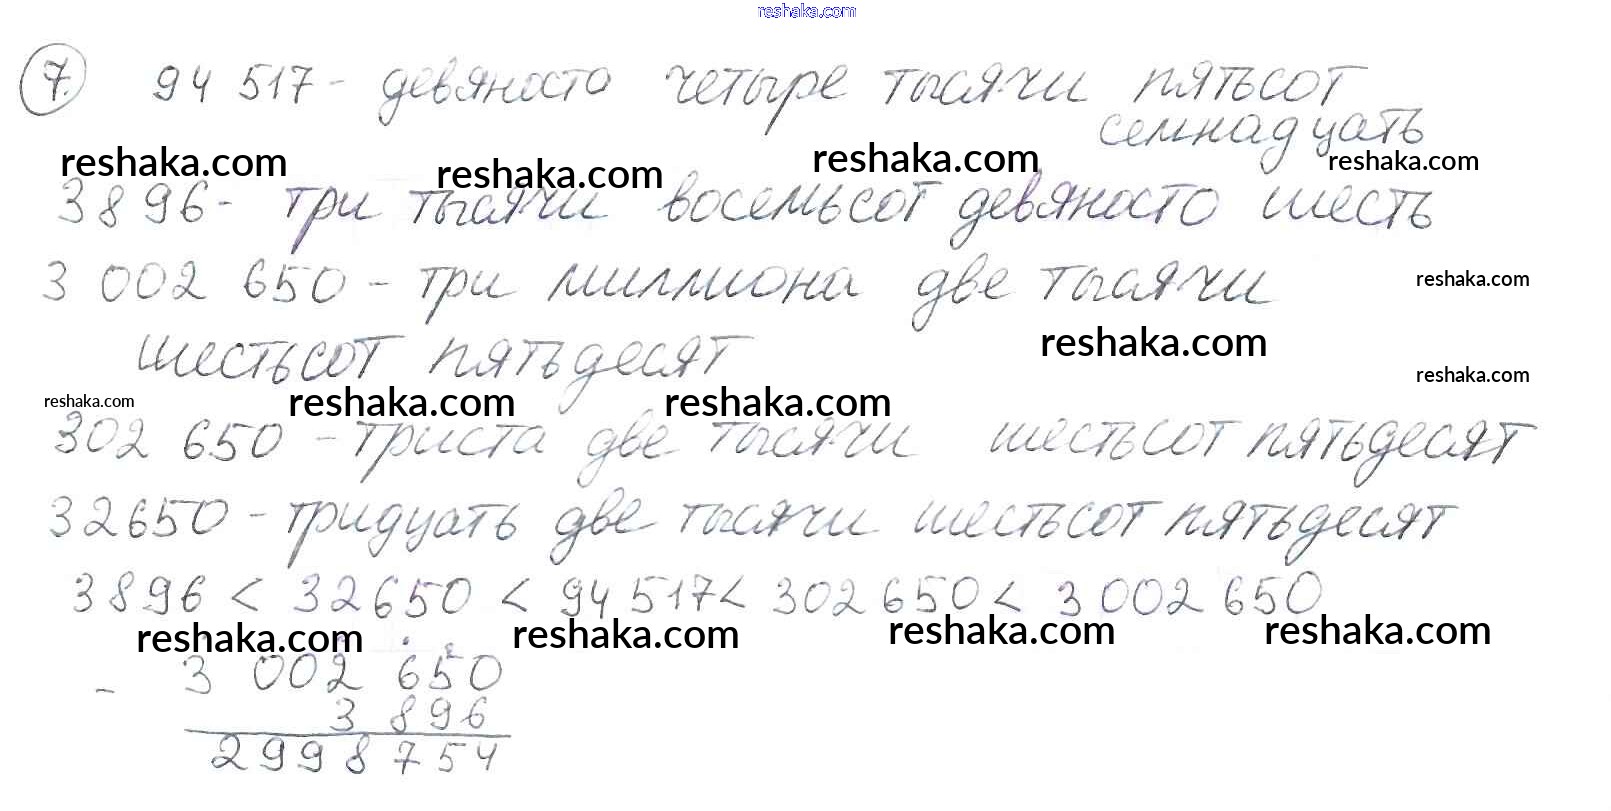 reshaka.com
7. 94 517 - девяносто четыре тысячи пятьсот
семнадцать
reshaka.com reshaka.com reshaka.com reshaka.com
3896 - три тысячи восемьсот девяносто шесть
3 002 650 - три миллиона две тысячи
reshaka.com
шестьсот пятьдесят
reshaka.com
reshaka.com
reshaka.com reshaka.com reshaka.com
302 650 - триста две тысячи шестьсот пятьдесят
32650 - тридцать две тысячи шестьсот пятьдесят
3896 < 32650 < 94517 < 302 650 < 3 002 650
reshaka.com reshaka.com reshaka.com reshaka.com
- 3 002 650
3 896
2998754